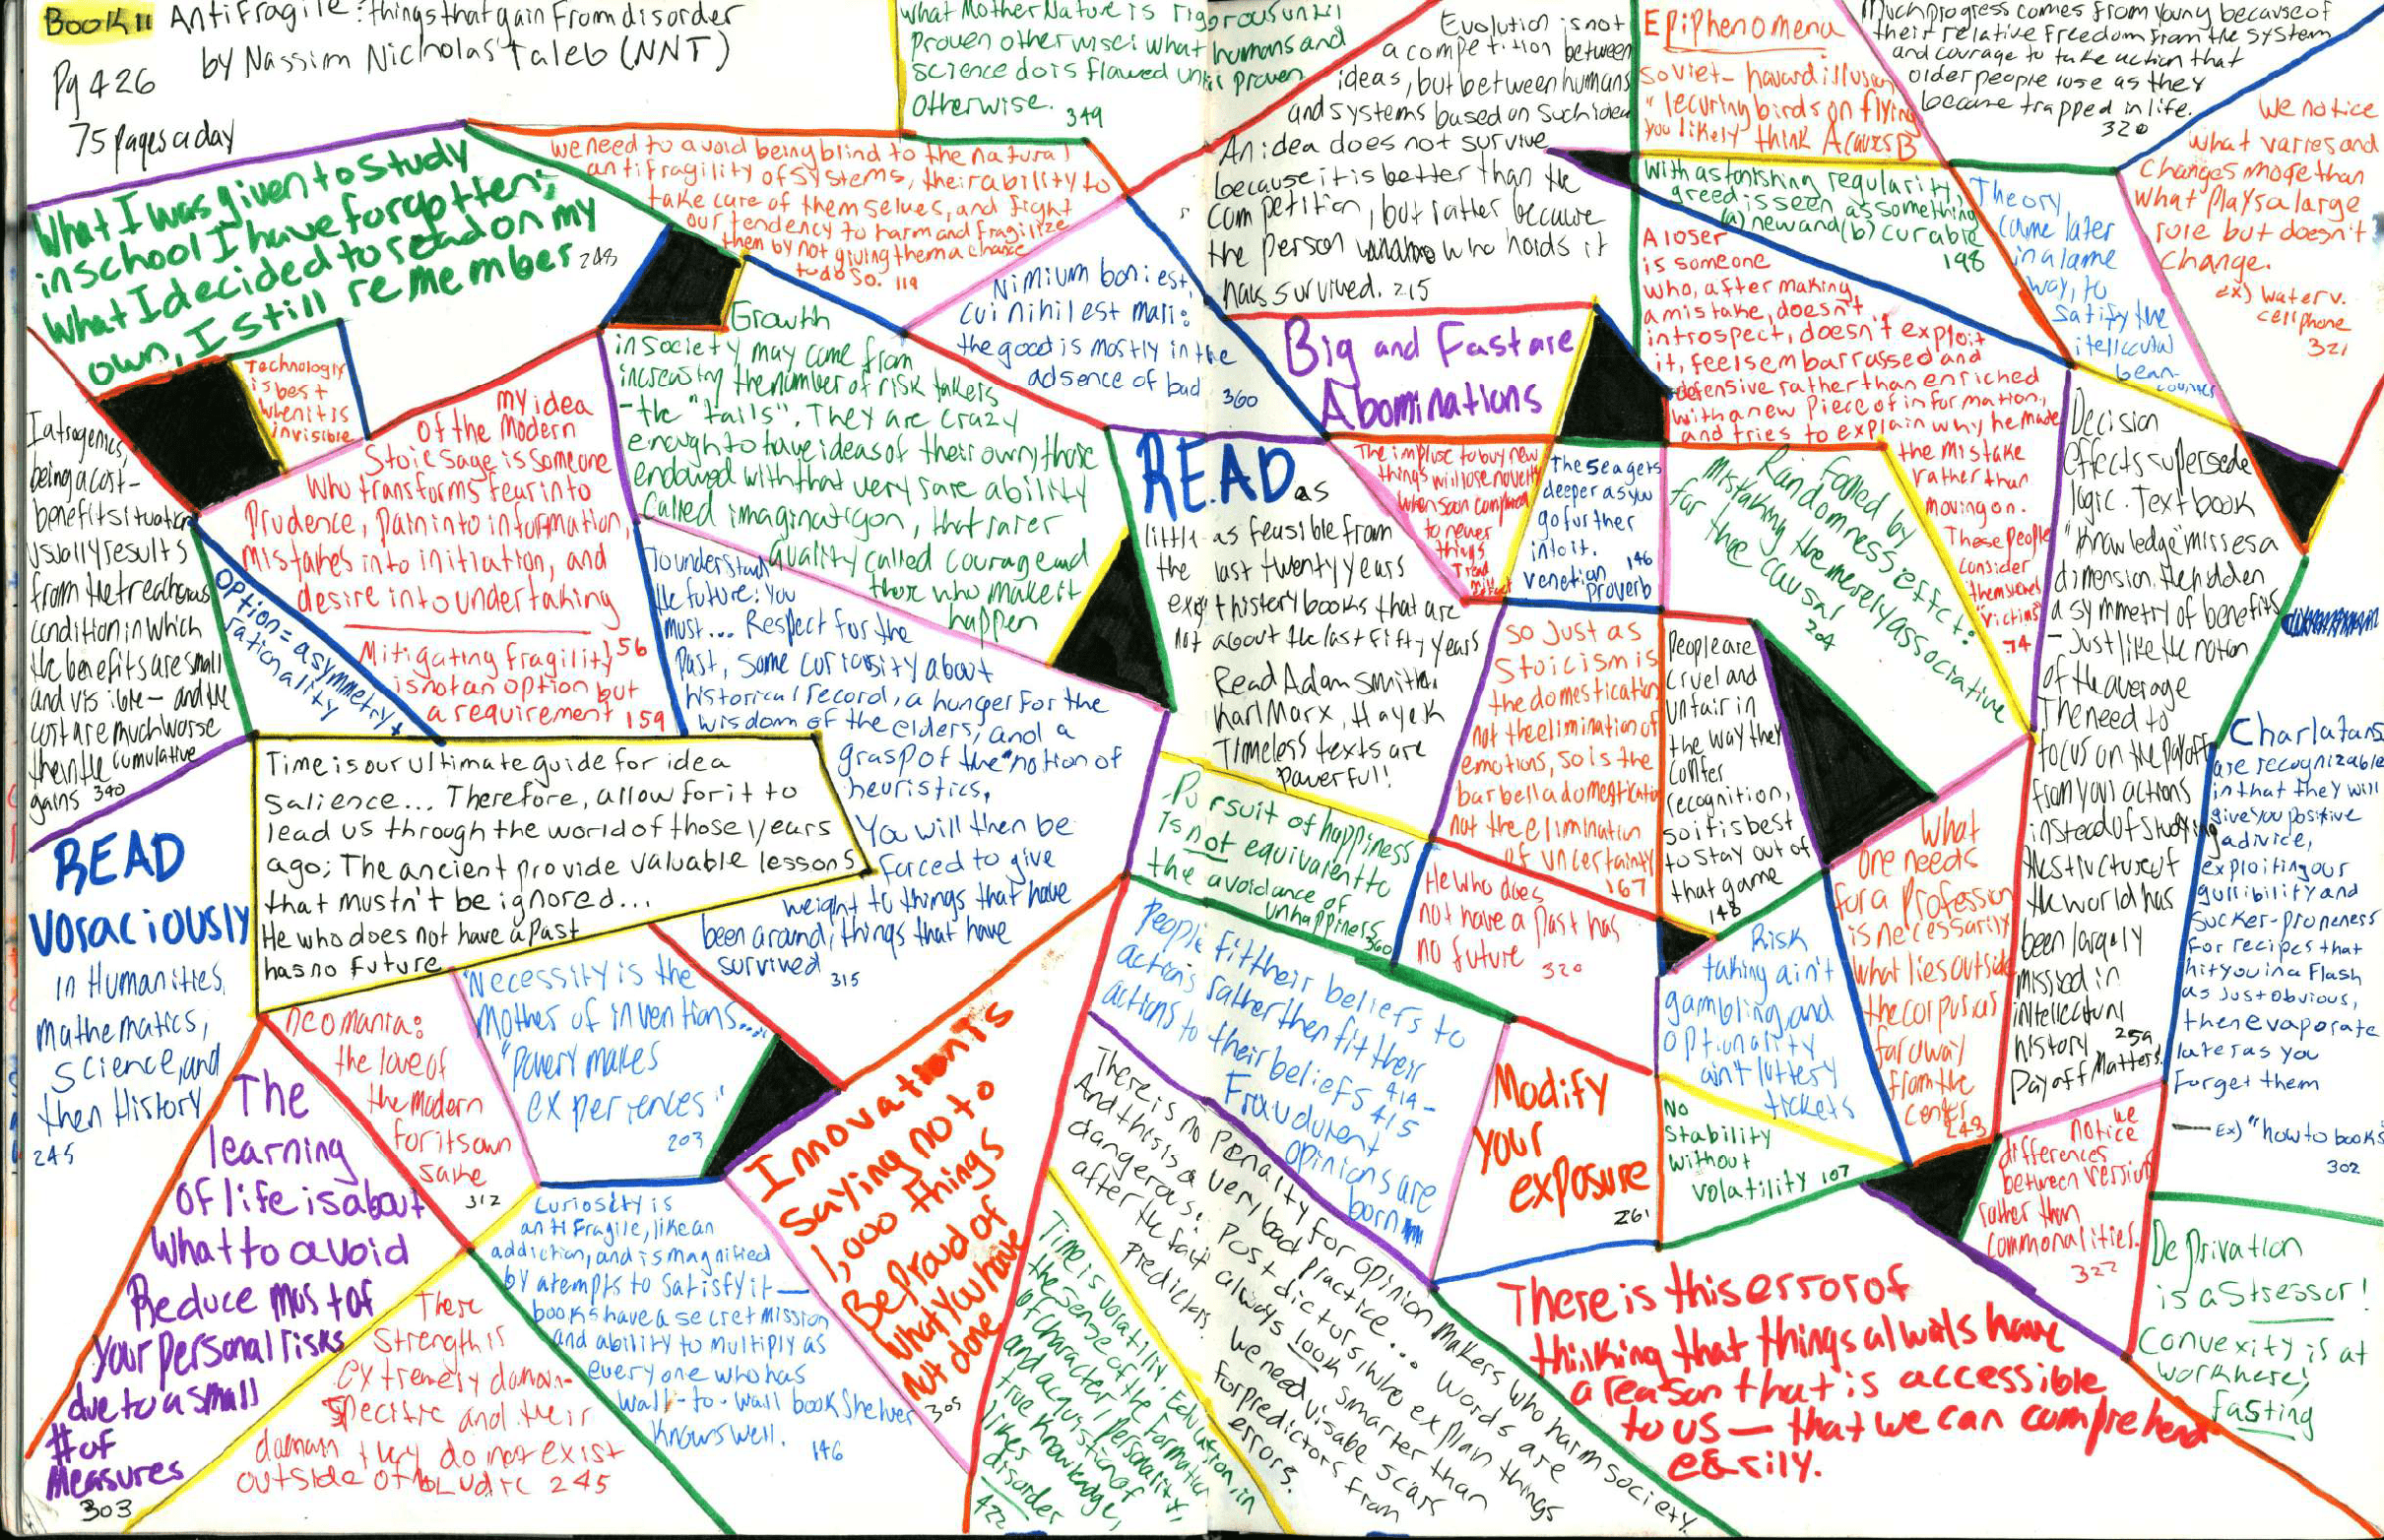 Book 11 Antifragile: things that gain from disorder
by Nassim Nicholas Taleb (NNT)
Pg 426
75 pages a day
What Mother Nature is rigorous until
proven otherwise; what humans and
science do is flawed until proven
otherwise.
349
Evolution is not
a competition between
ideas, but between humans
and systems based on such idea
An idea does not survive
because it is better than the
competition, but rather because
the person who holds it
has survived. 215
Epiphenomena
Soviet-havard illusion
"lecuring birds on flying
you likely think A causes B
Much progress comes from young because of
their relative freedom from the system
and courage to take action that
older people lose as they
became trapped in life.
320
We notice
what varies and
changes more than
what plays a large
role but doesn't
change.
ex) water v.
cellphone
321
What I was given to study
in school I have forgotten;
what I decided to read on my
own, I still remember 248
we need to avoid being blind to the natural
antifragility of systems, their ability to
take care of themselves, and fight
our tendency to harm and fragilize
them by not giving them a chance
to do so. 119
Nimium boni est,
cui nihil est mali:
the good is mostly in the
adsence of bad
360
With astonishing regularity,
greed is seen as something
(a) new and (b) curable
198
Theory
came later
in a lame
way, to
satify the
itellecual
bean-
counter
A loser
is someone
who, after making
a mistake, doesn't
introspect, doesn't exploit
it, feels embarrassed and
defensive rather than enriched
with a new piece of information,
and tries to explain why he made
the mistake
rather than
moving on.
These people
consider
themselves
"victims"
74
Big and Fast are
Abominations
Technology
is best
when it is
invisible
Growth
in society may come from
increasing the number of risk takers
- the "tails". They are crazy
enough to have ideas of their own, those
endowed with that very rare ability
called imagination, that rarer
quality called courage and
those who make it
happen
my idea
of the Modern
Stoic Sage is someone
who transforms fear into
Prudence, pain into information,
mistakes into initiation, and
desire into undertaking
156
Mitigating fragility
is not an option but
a requirement 159
Iatrogenics,
being a cost-
benefit situation
usually results
from the treacherous
condition in which
the benefits are small
and visible - and the
cost are much worse
then the cumulative
gains 340
option = asymmetry +
rationality
To understand
the future: you
must... Respect for the
past, some curiosity about
historical record, a hunger for the
wisdom of the elders, and a
grasp of the "notion of
heuristics,
You will then be
forced to give
weight to things that have
been around, things that have
survived 315
READ as
little as feasible from
the last twenty years
except history books that are
not about the last fifty years
Read Adam Smith,
Karl Marx, Hayek
Timeless texts are
powerful!
The impluse to buy new
things will lose novelty
when soon compared
to newer
things
Tread
mill
The sea gets
deeper as you
go further
into it. 146
venetian
proverb
Fooled by
Randomness effect:
Mistaking the merely associative
for the causal
204
Decision
effects supersede
logic. Text book
"Knowledge" misses a
dimension, the hidden
asymmetry of benefits
- Just like the notion
of the average
The need to
focus on the payoff
from your actions
instead of studying
the structure of
the world has
been largely
missed in
intellectual
history 259
Payoff Matters!
Time is our ultimate guide for idea
salience... Therefore, allow for it to
lead us through the world of those years
ago; The ancient provide valuable lessons
that mustn't be ignored...
He who does not have a past
has no future
READ
voraciously
in Humanities,
mathematics,
science, and
then History
245
So just as
Stoicism is
the domestication
not the elimination of
emotions, so is the
barbell a domestication
not the elimination
of uncertainty
167
People are
cruel and
unfair in
the way they
confer
recognition,
so it is best
to stay out of
that game
148
Pursuit of happiness
Is not equivalent to
the avoidance of
unhappiness
360
He who does
not have a past has
no future
320
What
one needs
for a profession
is necessarily
what lies outside
the corpus as
far away
from the
center
243
Charlatans
are recognizable
in that they will
give you positive
advice,
exploiting our
gullibility and
sucker-proneness
for recipes that
hit you in a flash
as just obvious,
then evaporate
later as you
forget them
- Ex) "how to books"
302
Risk
taking ain't
gambling, and
optionality
ain't lottery
tickets
neomania:
the love of
the modern
for its own
sake
312
"Necessity is the
Mother of inventions....
"Poverty makes
experiences"
203
People fit their beliefs to
actions rather then fit their
actions to their beliefs 414-
415
Fraudulent
opinions are
born
Modify
your
exposure
261
No
stability
without
volatility 107
we
notice
differences
between version
rather than
commonalities.
322
The
learning
of life is about
what to avoid
Reduce most of
your personal risks
due to a small
# of
measures
303
Innovation is
saying no to
1,000 things
Be proud of
what you have
not done
305
Curiosity is
antifragile, like an
addiction, and is magnified
by atempts to satisfy it -
books have a secret mission
and ability to multiply as
everyone who has
wall-to-wall bookshelves
knows well.
146
There
Strength is
extremely domain-
specific and their
domain they do not exist
outside of
245
There is no penalty for opinion makers who harm society.
And this is a very bad practice... words are
dangerous; Post dictors, who explain things
after the fact always look smarter than
predictors. We need visabe scars
for predictors from
errors.
Time is volatility. Education, in
the sense of the formation
of character, personality,
and acquisition of
true knowledge,
likes
disorder
422
There is this error of
thinking that things always have
a reason that is accessible
to us - that we can comprehend
easily.
Deprivation
is a Stressor!
Convexity is at
work here;
fasting